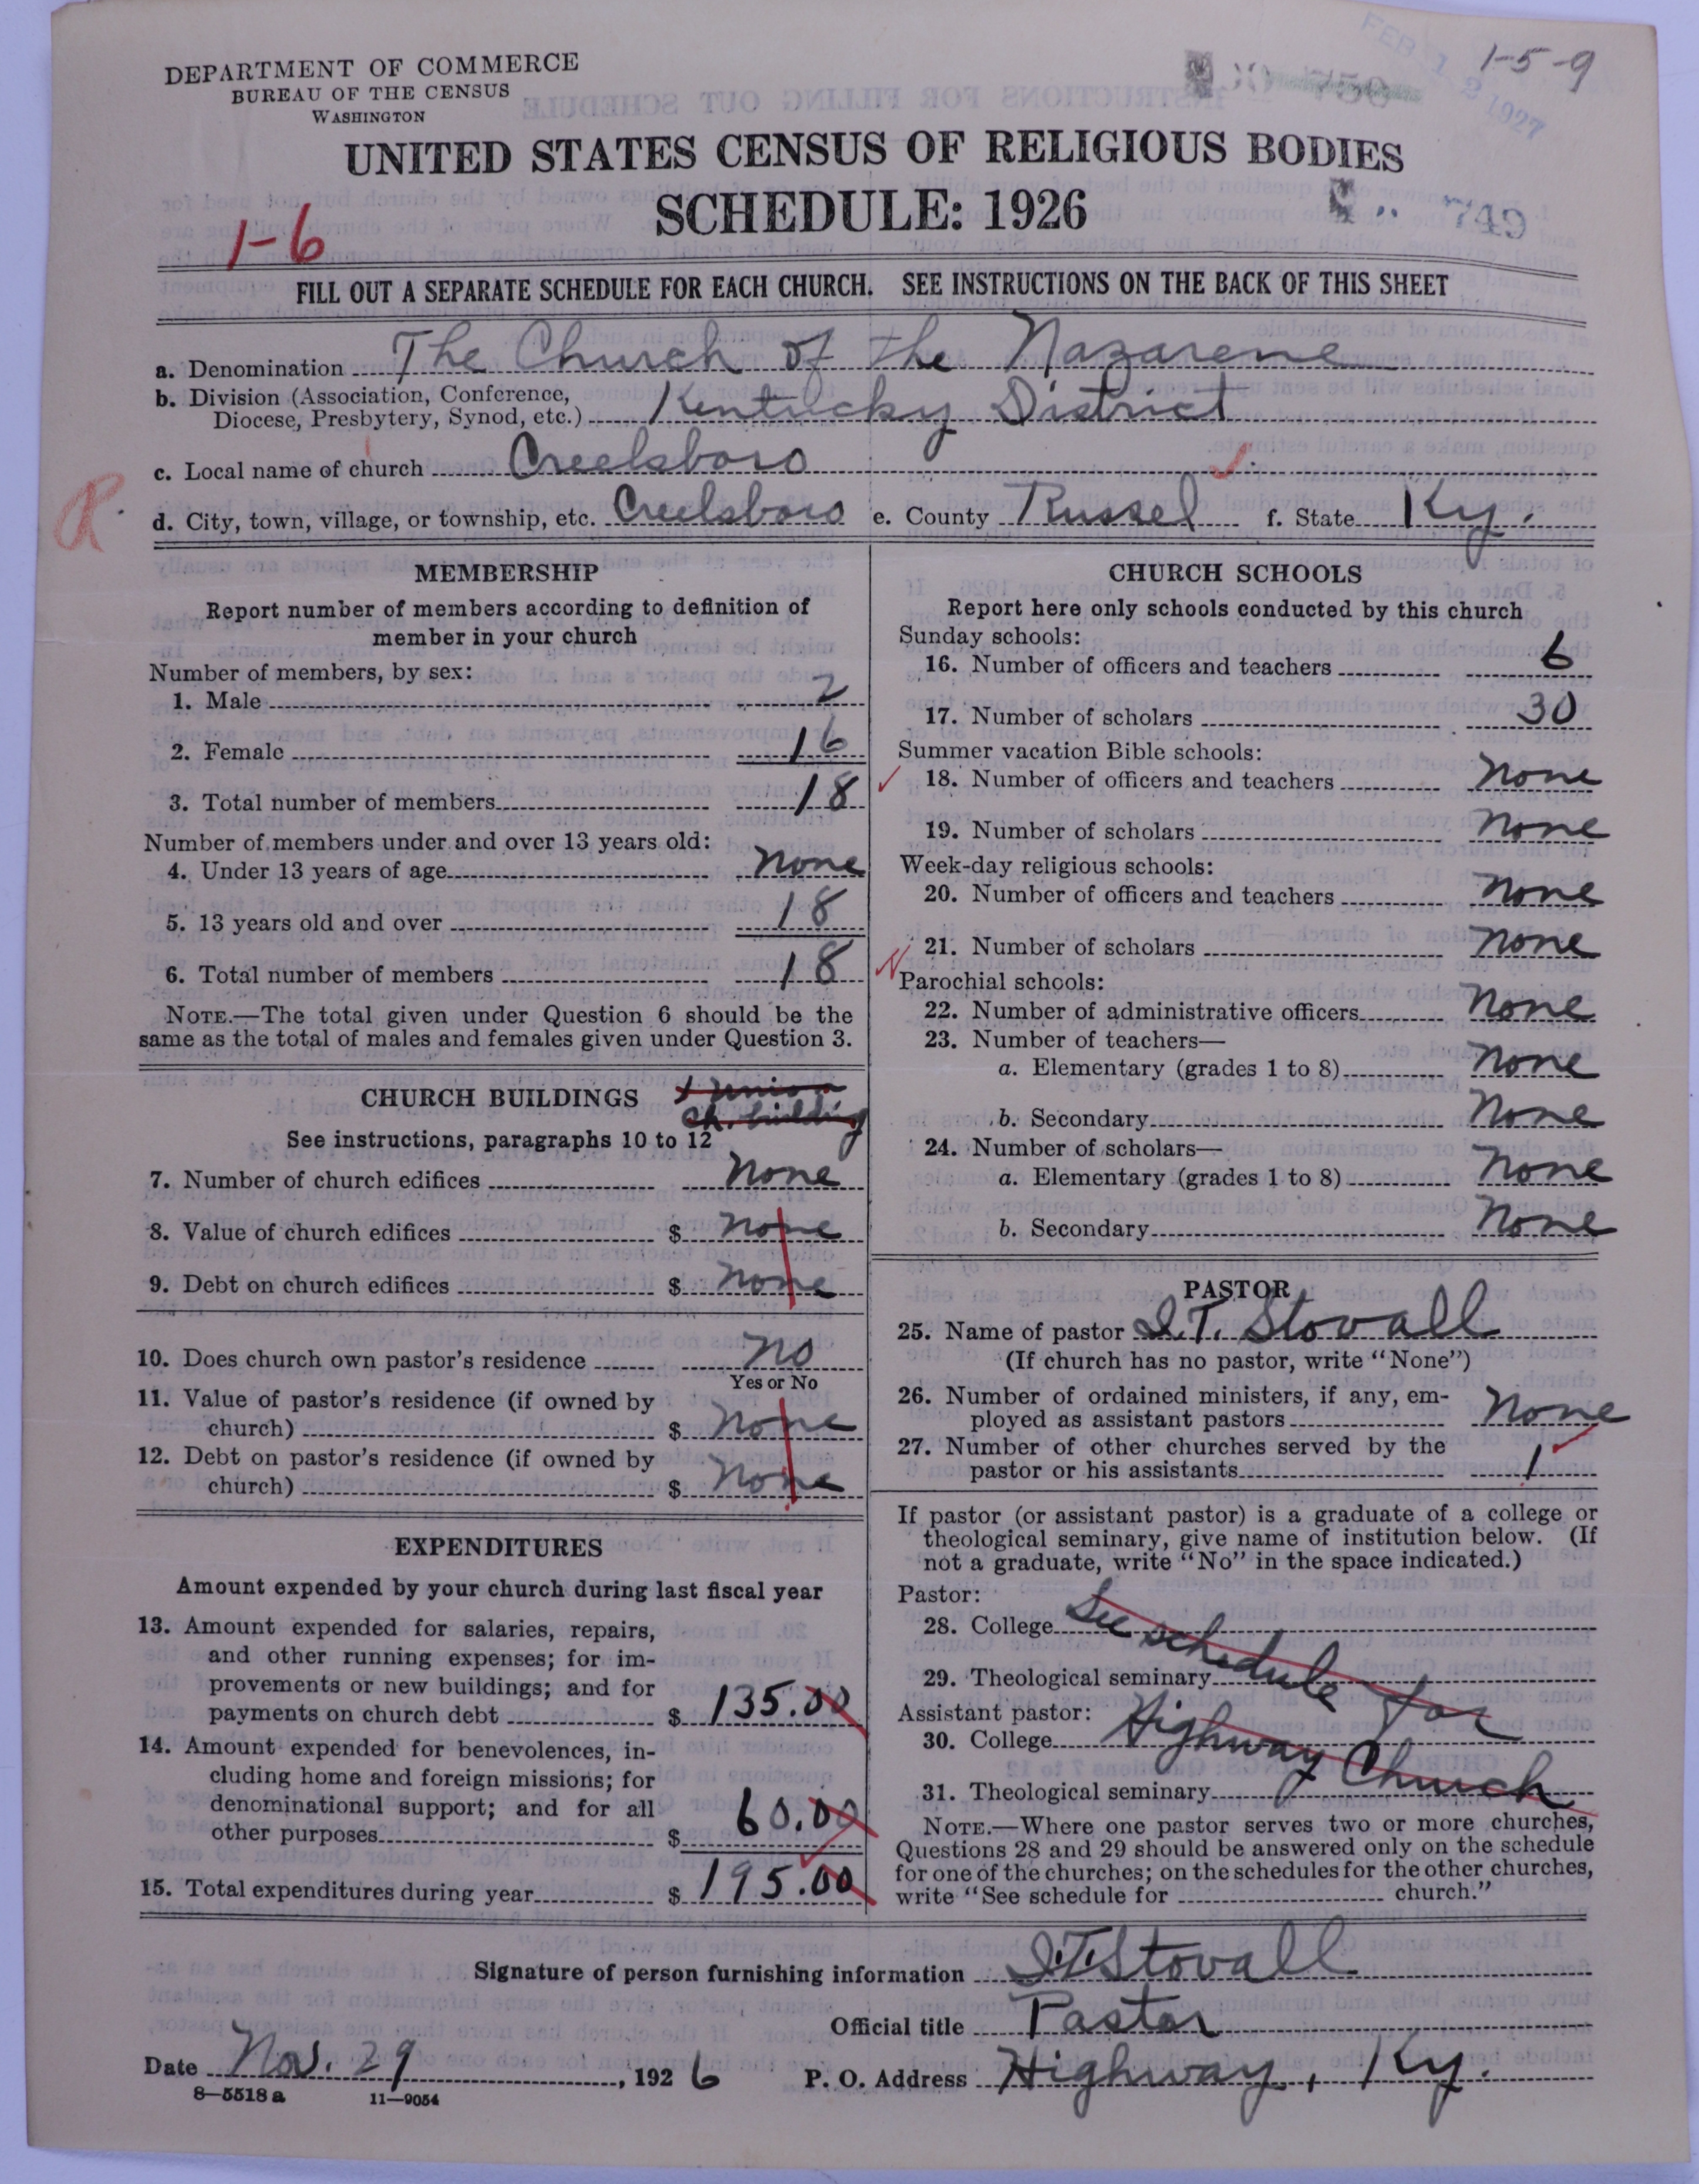 DEPARTMENT OF COMMERCE
BUREAU OF THE CENSUS
WASHINGTON
FEB 12 1927
1-5-9
UNITED STATES CENSUS OF RELIGIOUS BODIES
SCHEDULE: 1926
749
1-6
FILL OUT A SEPARATE SCHEDULE FOR EACH CHURCH. SEE INSTRUCTIONS ON THE BACK OF THIS SHEET
a. Denomination The Church of the Nazarene
b. Division (Association, Conference, Diocese, Presbytery, Synod, etc.) Kentucky District
c. Local name of church Creelsboro
R
d. City, town, village, or township, etc. Creelsboro e. County Russel f. State Ky.
MEMBERSHIP
Report number of members according to definition of
member in your church
Number of members, by sex:
1. Male 2
2. Female 16
3. Total number of members 18
Number of members under and over 13 years old:
4. Under 13 years of age None
5. 13 years old and over 18
6. Total number of members 18
NOTE.—The total given under Question 6 should be the
same as the total of males and females given under Question 3.
CHURCH BUILDINGS
1 Union
Ch. building
See instructions, paragraphs 10 to 12
7. Number of church edifices None
8. Value of church edifices $ None
9. Debt on church edifices $ None
10. Does church own pastor's residence No
Yes or No
11. Value of pastor's residence (if owned by
church) $ None
12. Debt on pastor's residence (if owned by
church) $ None
EXPENDITURES
Amount expended by your church during last fiscal year
13. Amount expended for salaries, repairs,
and other running expenses; for im-
provements or new buildings; and for
payments on church debt $ 135.00
14. Amount expended for benevolences, in-
cluding home and foreign missions; for
denominational support; and for all
other purposes $ 60.00
15. Total expenditures during year $ 195.00
CHURCH SCHOOLS
Report here only schools conducted by this church
Sunday schools:
16. Number of officers and teachers 6
17. Number of scholars 30
Summer vacation Bible schools:
18. Number of officers and teachers None
19. Number of scholars None
Week-day religious schools:
20. Number of officers and teachers None
21. Number of scholars None
Parochial schools:
22. Number of administrative officers None
23. Number of teachers—
a. Elementary (grades 1 to 8) None
b. Secondary None
24. Number of scholars—
a. Elementary (grades 1 to 8) None
b. Secondary None
PASTOR
25. Name of pastor I.T. Stovall
(If church has no pastor, write "None")
26. Number of ordained ministers, if any, em-
ployed as assistant pastors None
27. Number of other churches served by the
pastor or his assistants 1
If pastor (or assistant pastor) is a graduate of a college or
theological seminary, give name of institution below. (If
not a graduate, write "No" in the space indicated.)
Pastor:
28. College See schedule for
29. Theological seminary
Assistant pastor:
30. College Highway Church
31. Theological seminary
NOTE.—Where one pastor serves two or more churches,
Questions 28 and 29 should be answered only on the schedule
for one of the churches; on the schedules for the other churches,
write "See schedule for church."
Signature of person furnishing information I.T. Stovall
Official title Pastor
Date Nov. 29, 1926 P. O. Address Highway, Ky.
8—5518 a 11—9054